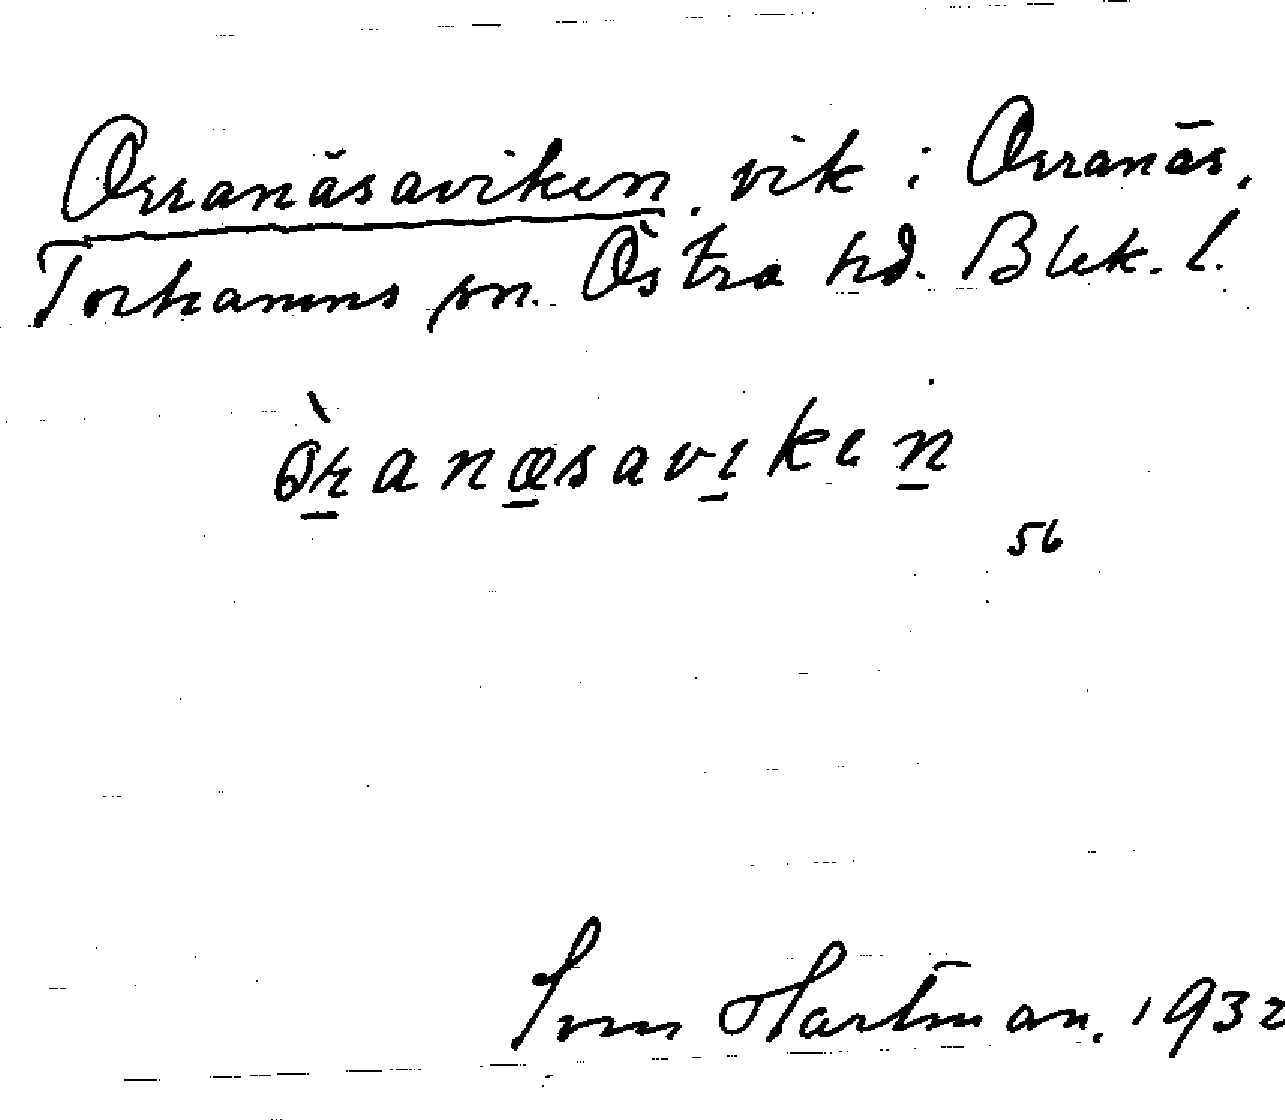 Orranäsaviken, vik i Orranäs,
Torhamns sn. Östra hd. Blek. l.
òranæsaviken
56
Sven Hartman. 1932